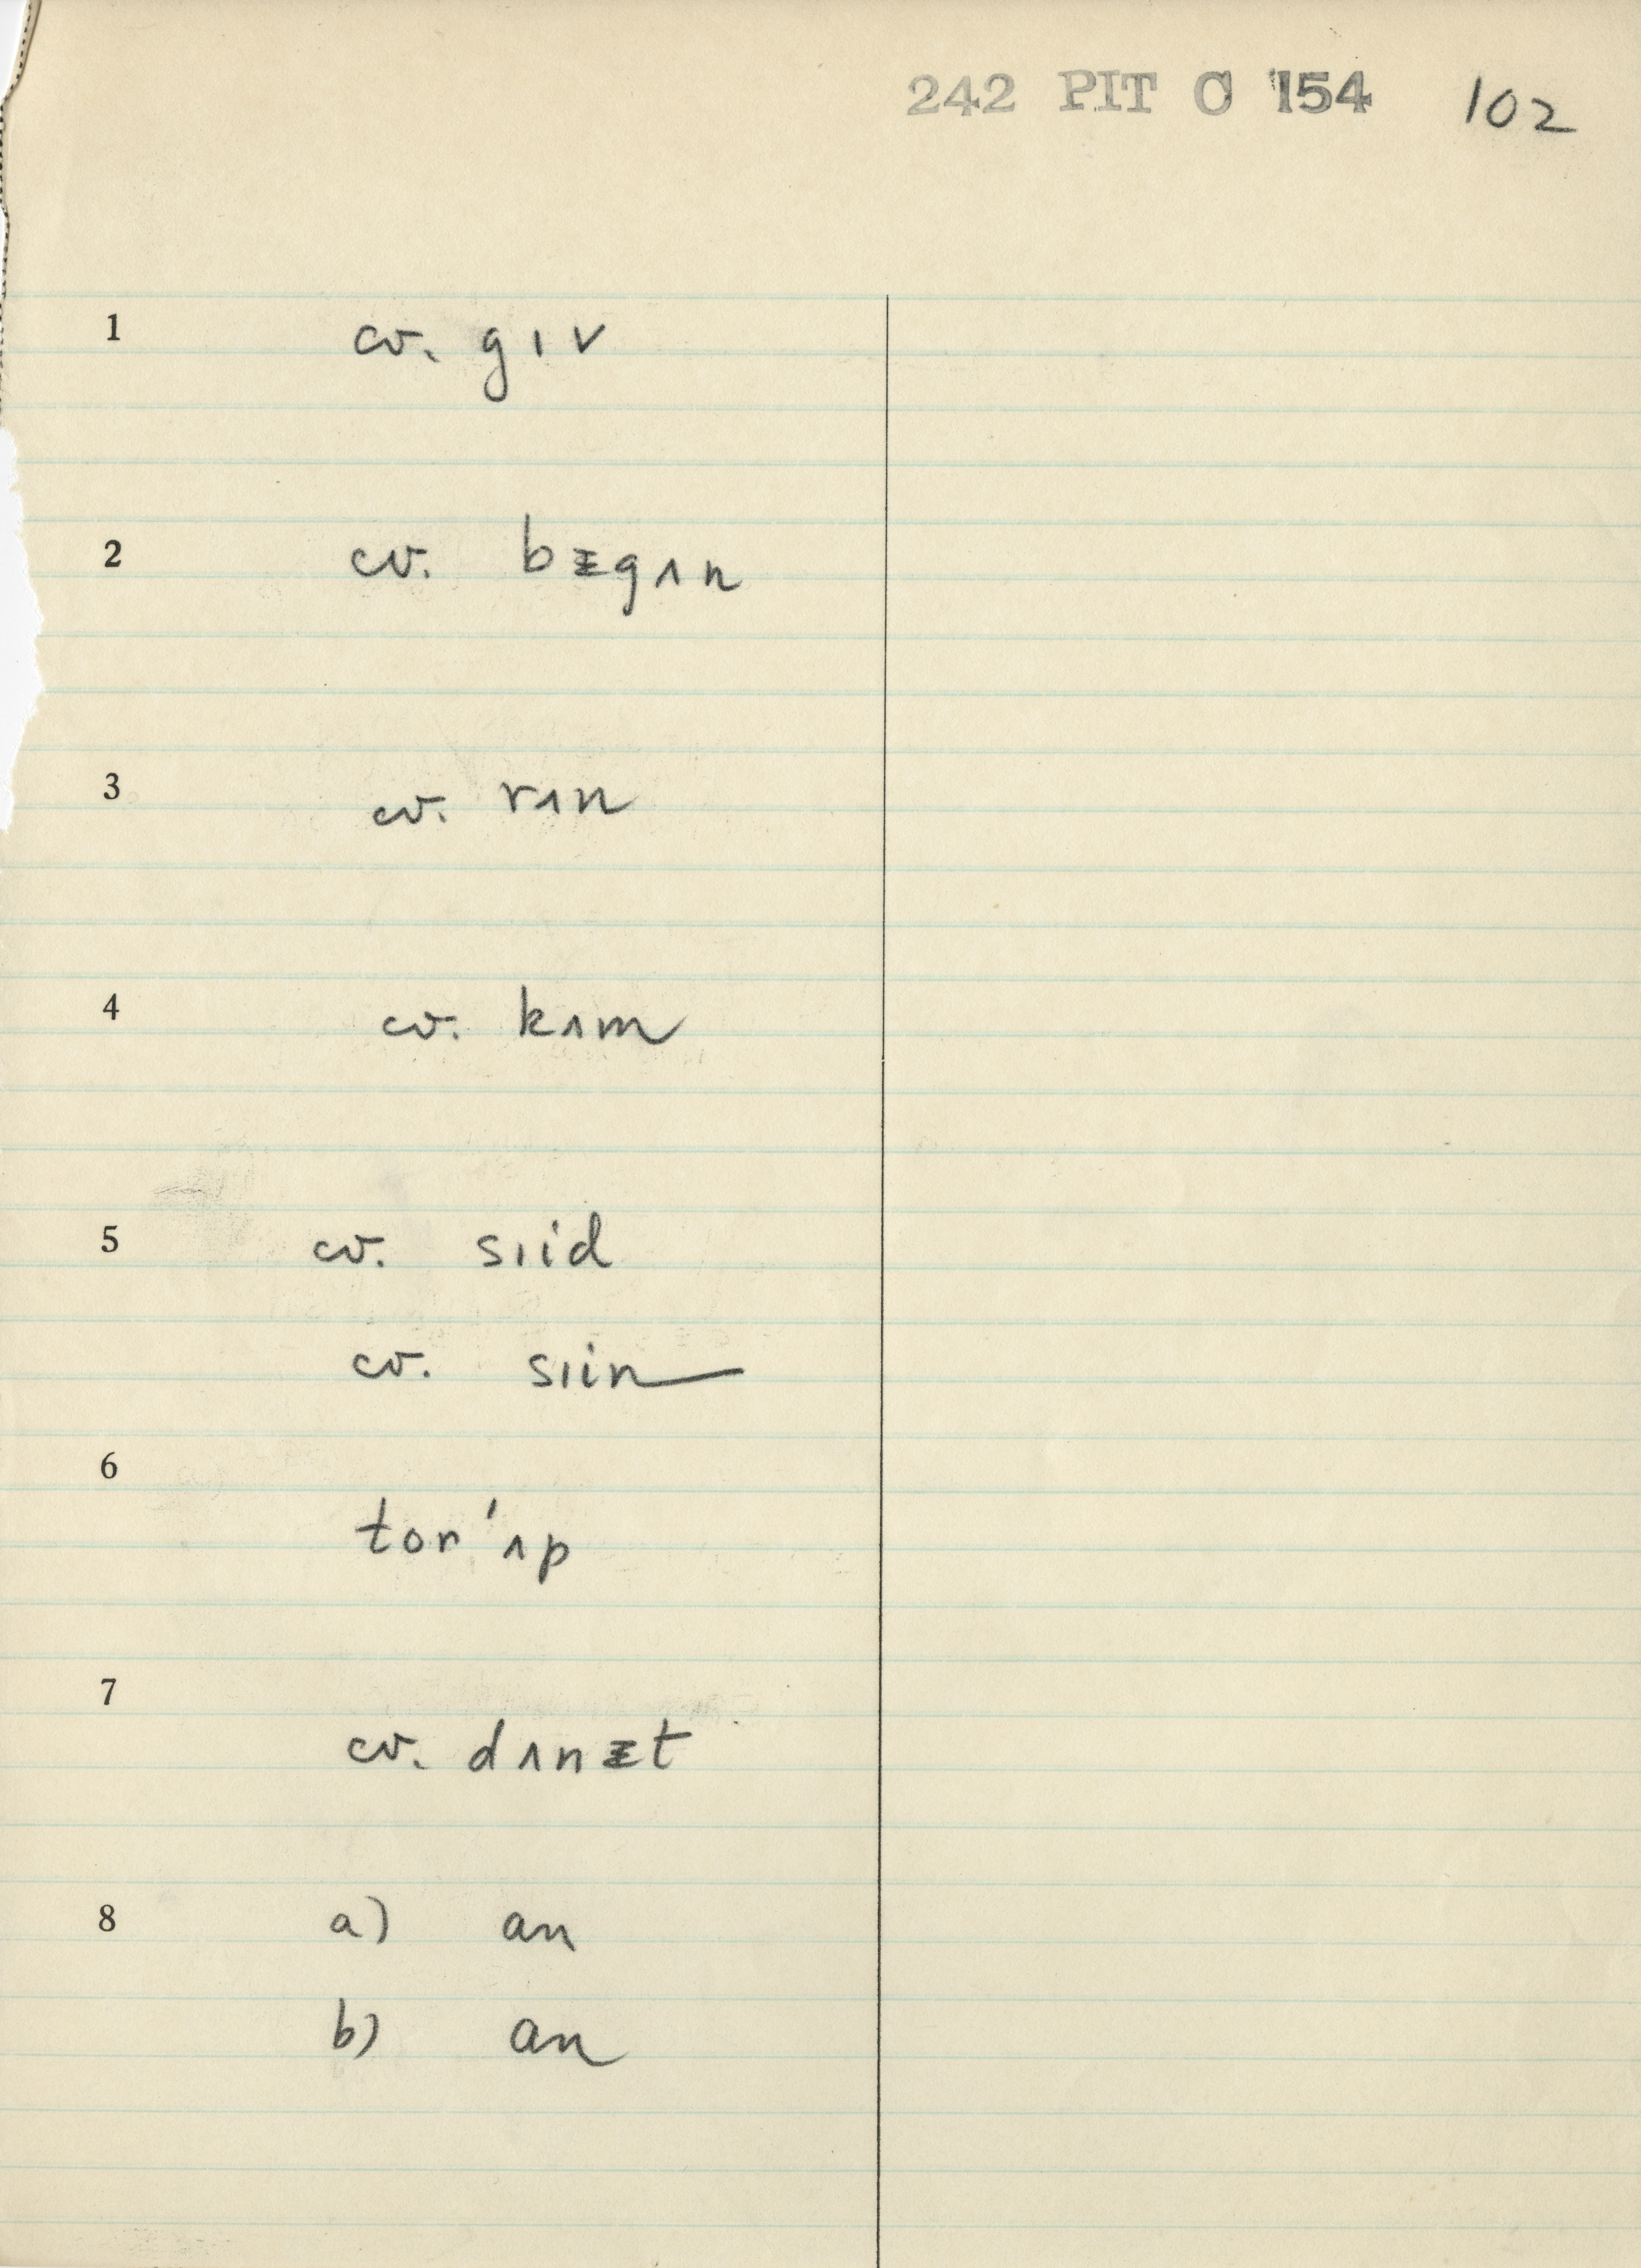 242 PIT C 154 102
1 cv. gɪv
2 cv. bᵻgʌn
3 cv. rʌn
4 cv. kʌm
5 cv. sɪid
cv. sɪin
6 tor'ʌp
7 cv. dʌnᵻt
8 a) an
b) an